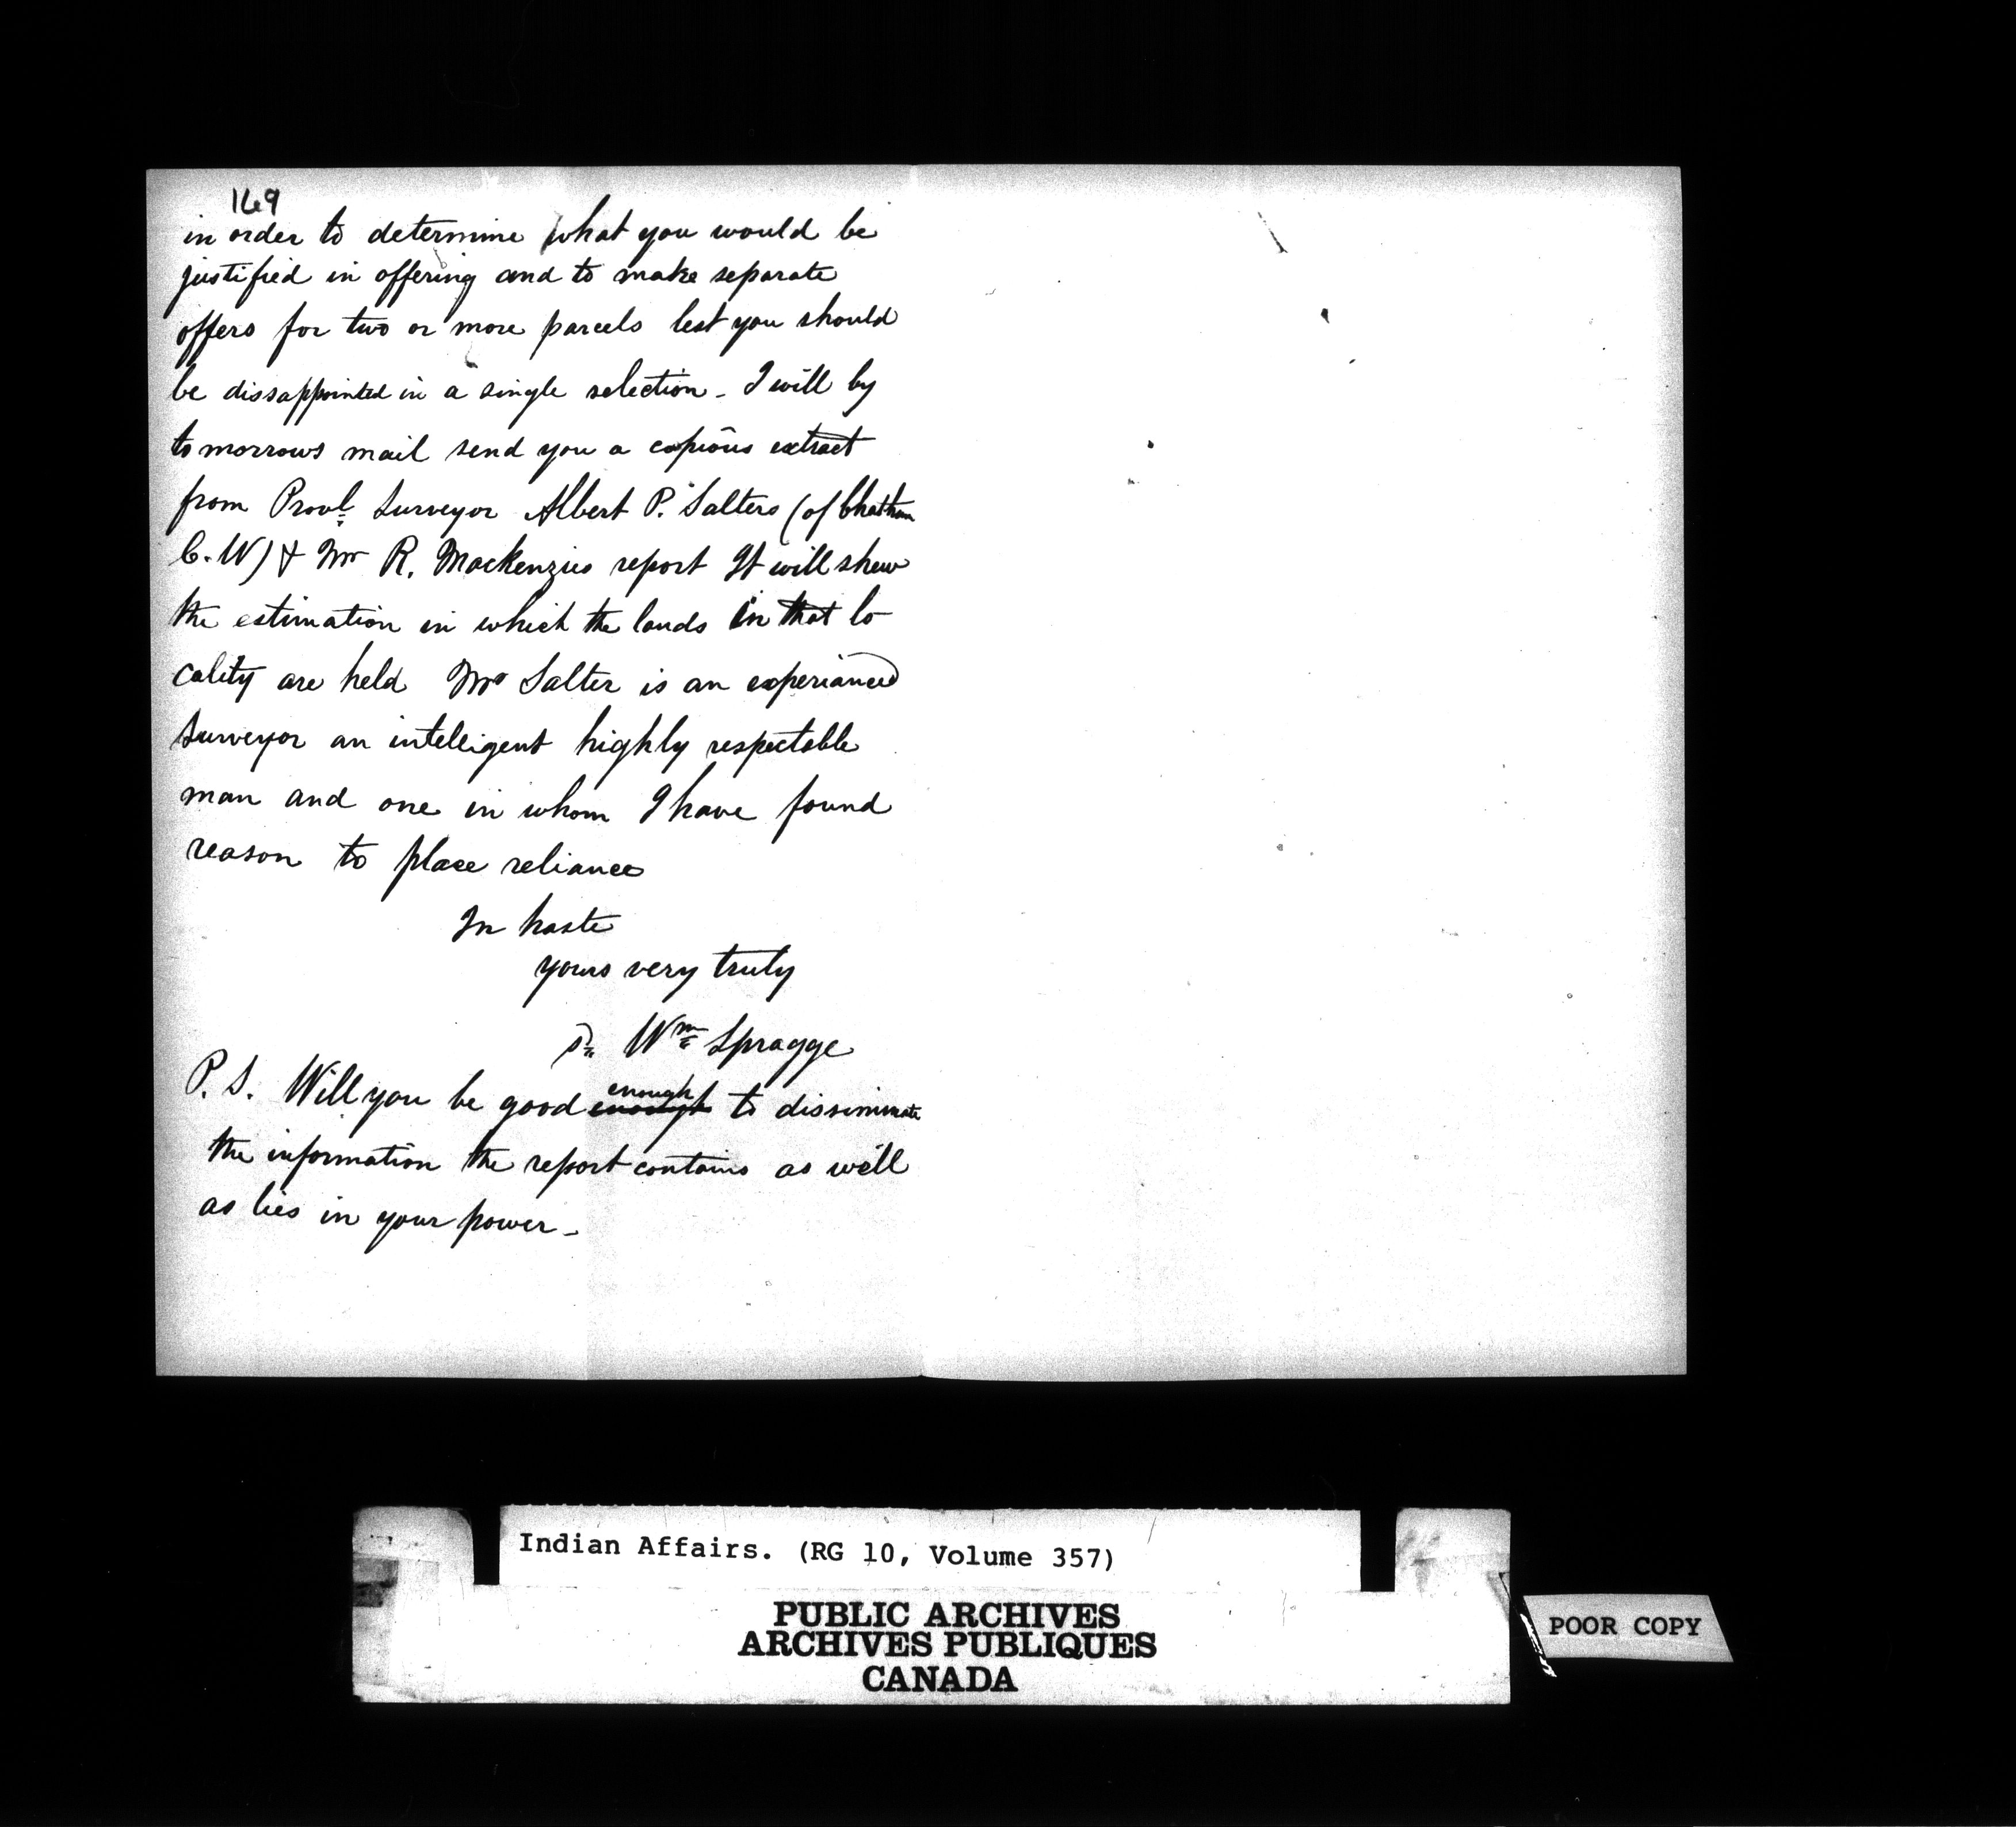 169
in order to determine what you would be
justified in offering and to make separate
offers for two or more parcels lest you should
be dissappointed in a single selection - I will by
tomorrows mail send you a copious extract
from Provl Surveyor Albert P. Salters (of Chatham
C.W) & Mr R. Mackenzies report It will shew
the estimation in which the lands in that lo
cality are held Mr Salter is an experianced
Surveyor an intelligent highly respectable
man and one in whom I have found
reason to place reliance
In haste
yours very truly
Wm Spragge
P.S. Will you be good enough to dissiminate
the information the report contains as well
as lies in your power -
Indian Affairs. (RG 10, Volume 357)
PUBLIC ARCHIVES
ARCHIVES PUBLIQUES
CANADA
POOR COPY